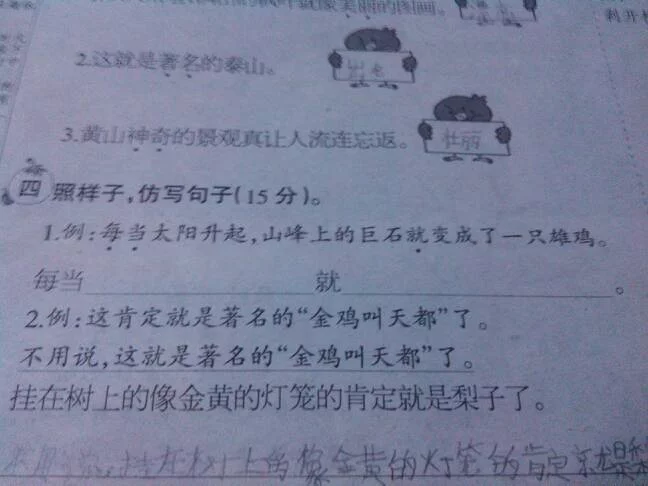 就像美丽的图画。
2.这就是著名的泰山。
出名
3.黄山神奇的景观真让人流连忘返。
壮丽
四 照样子,仿写句子(15分)。
1.例:每当太阳升起,山峰上的巨石就变成了一只雄鸡。
每当 就 。
2.例:这肯定就是著名的“金鸡叫天都”了。
不用说,这就是著名的“金鸡叫天都”了。
挂在树上的像金黄的灯笼的肯定就是梨子了。
不用说,挂在树上的像金黄的灯笼的肯定就是